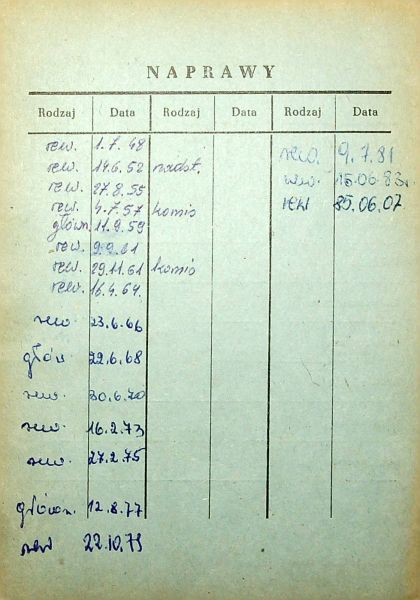 NAPRAWY
Rodzaj Data Rodzaj Data Rodzaj Data
rew. 1.7.48
rew. 14.6.52 nadst.
rew. 27.8.55
rew. 4.7.57 komis
główn. 11.9.59
rew. 9.9.61
rew. 29.11.61 komis
rew. 16.4.64.
rew. 23.6.66
głów. 22.6.68
rew. 30.6.70
rew. 16.2.73
rew. 27.2.75
główn. 12.8.77
rew 22.10.79
rew. 9.7.81
rew. 15.06.83r.
rew 85.06.07